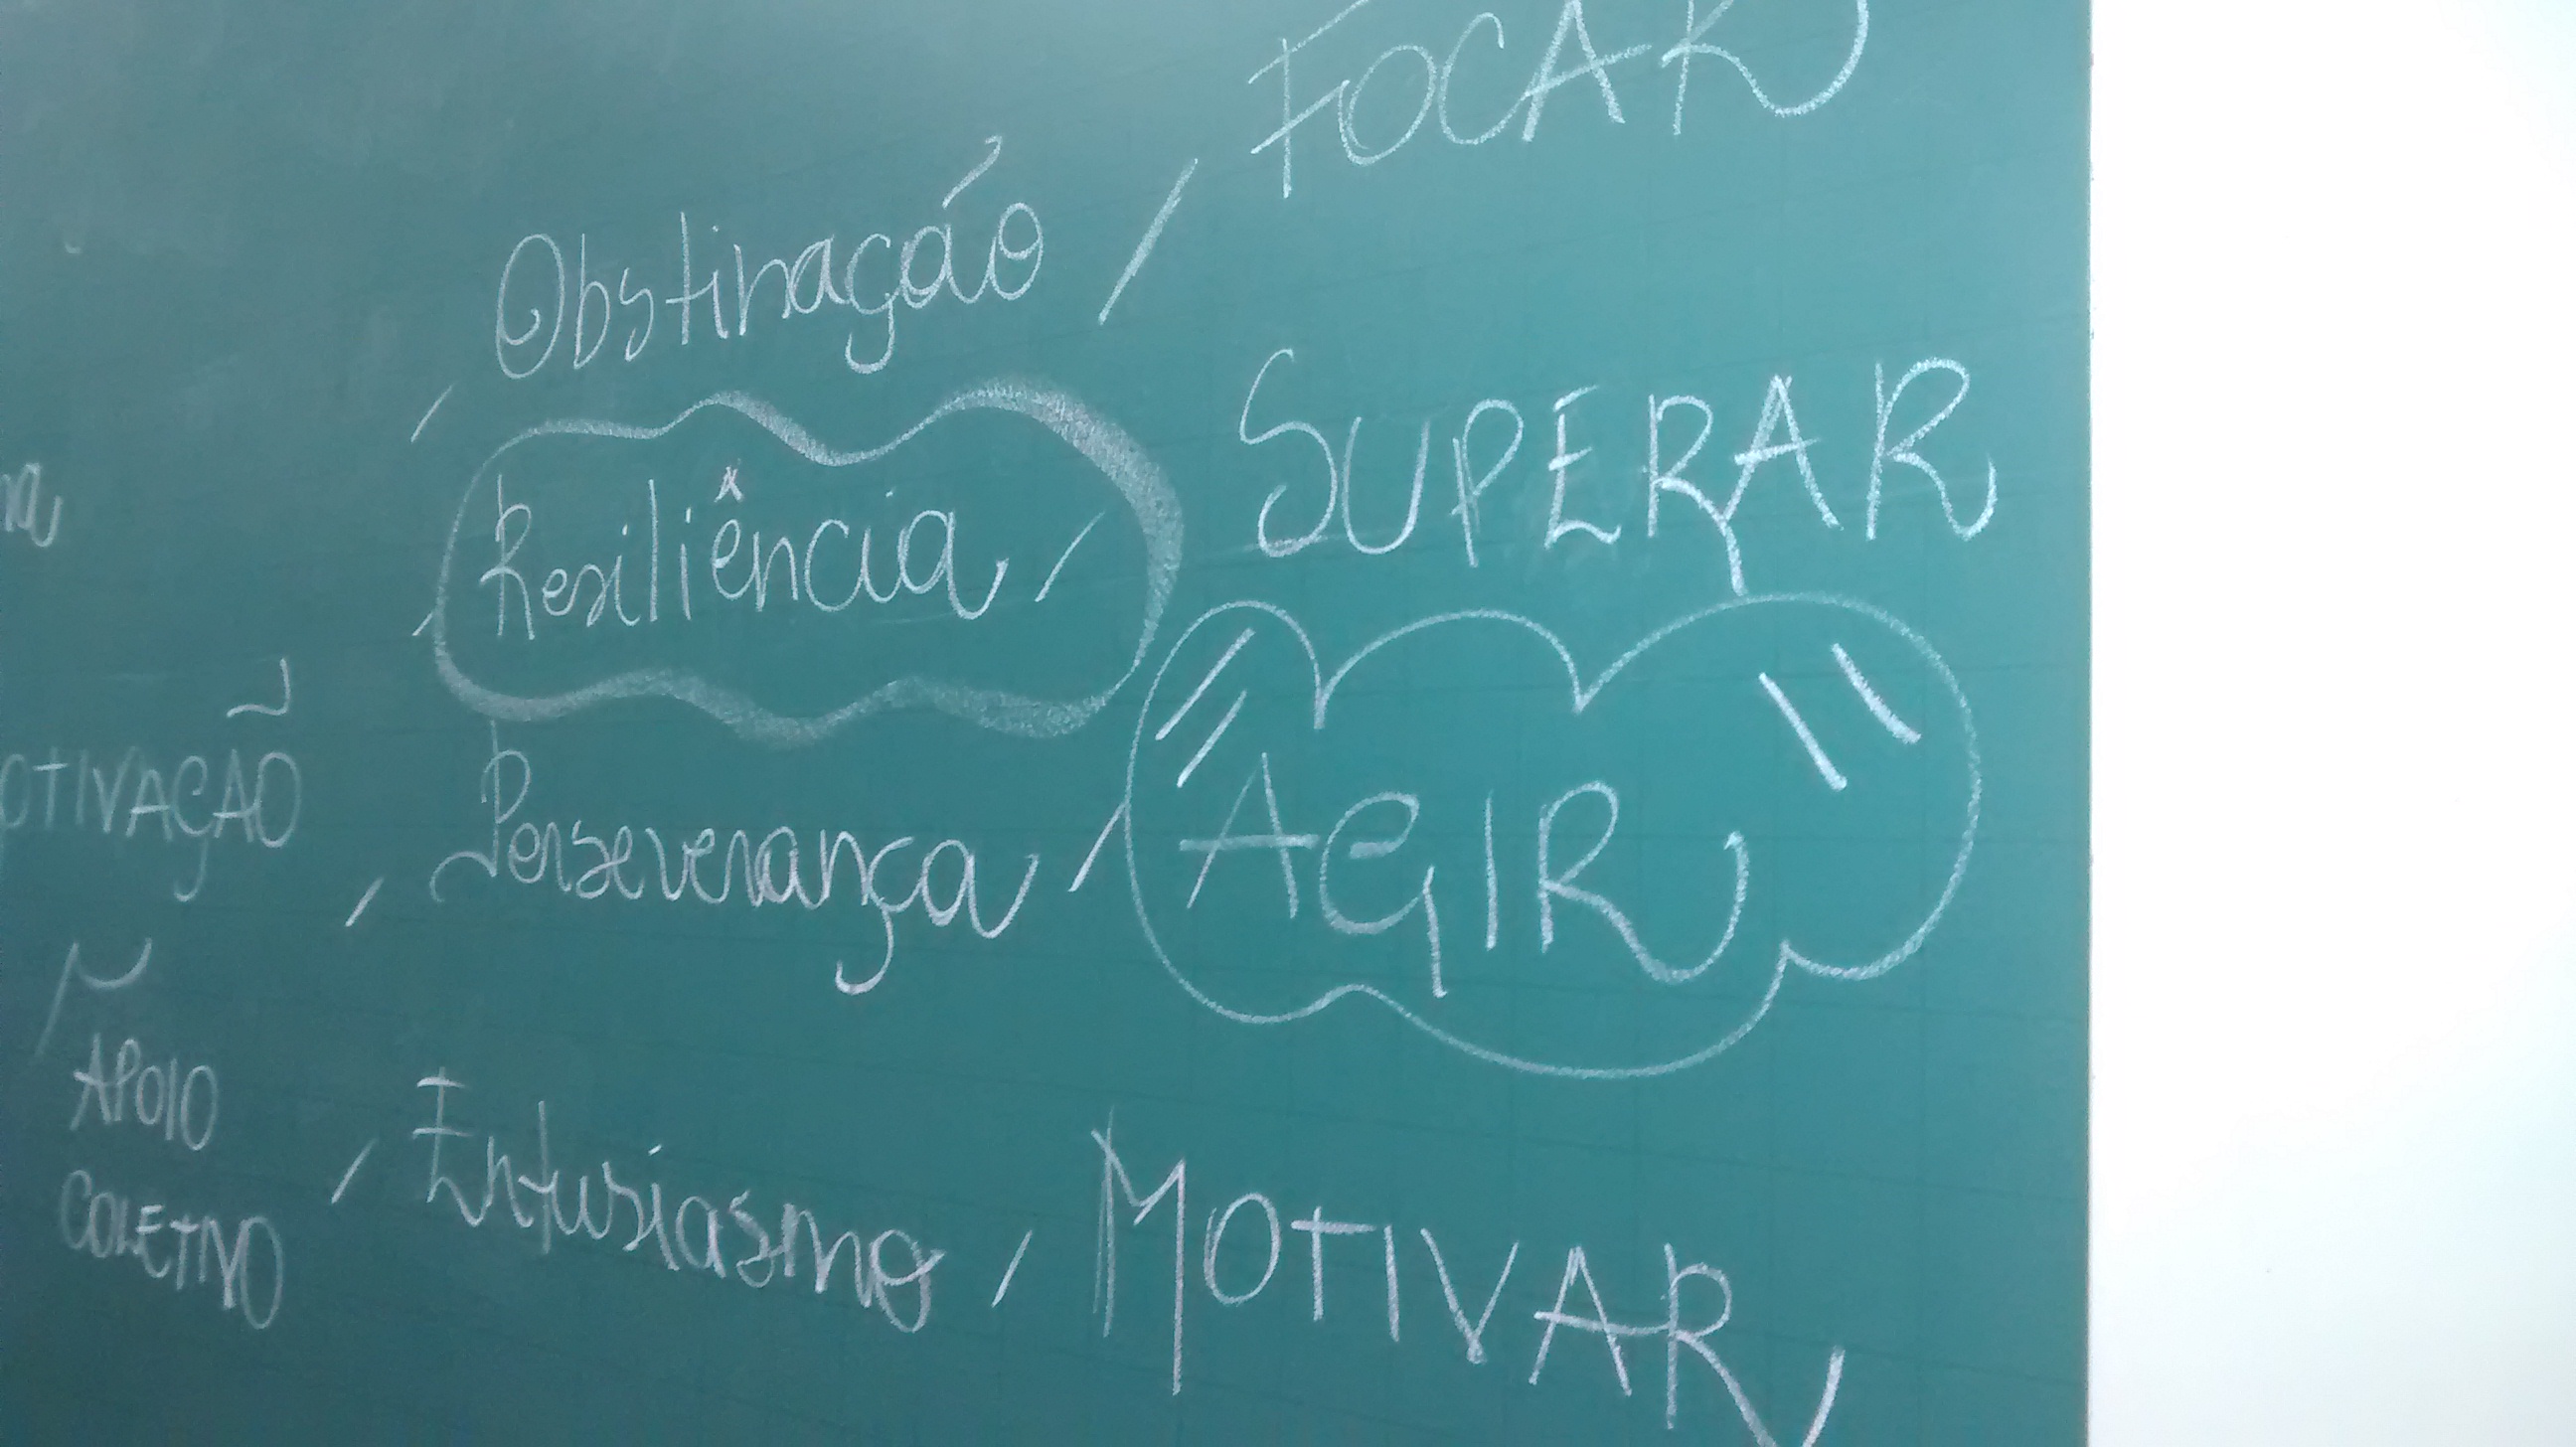 FOCAR
Obstinação /
SUPERAR
Resiliência /
"AGIR"
OTIVAÇÃO / Perseverança /
APOIO
COLETIVO / Entusiasmo / MOTIVAR